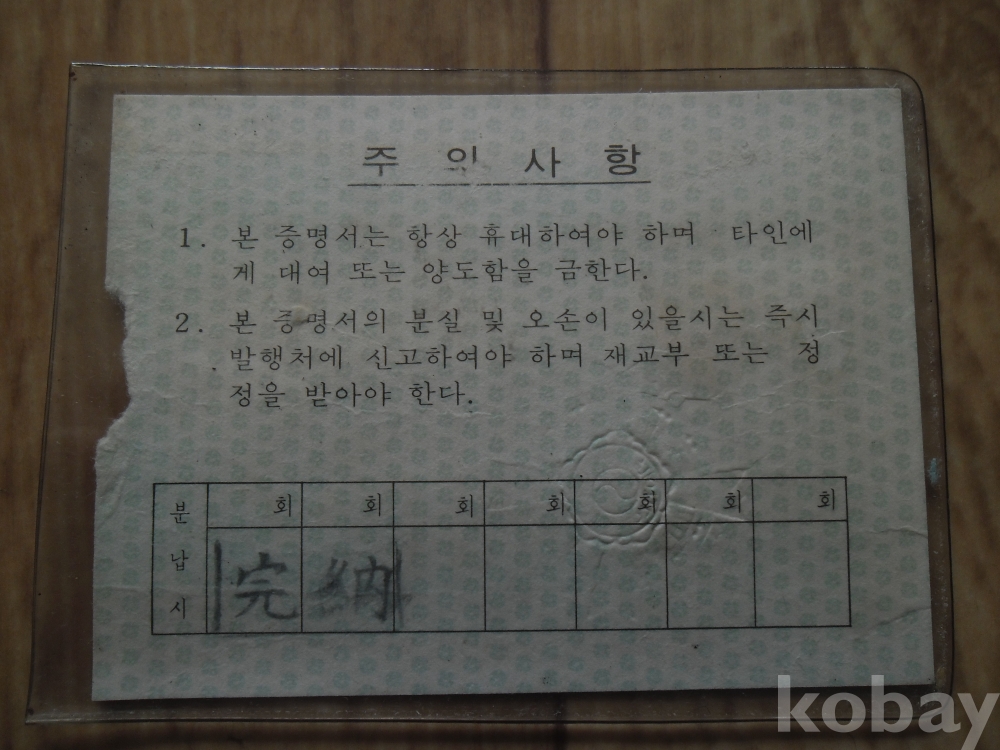 주 의 사 항
1. 본 증명서는 항상 휴대하여야 하며 타인에
게 대여 또는 양도함을 금한다.
2. 본 증명서의 분실 및 오손이 있을시는 즉시
발행처에 신고하여야 하며 재교부 또는 정
정을 받아야 한다.
분납시 회 회 회 회 회 회 회
完納
kobay